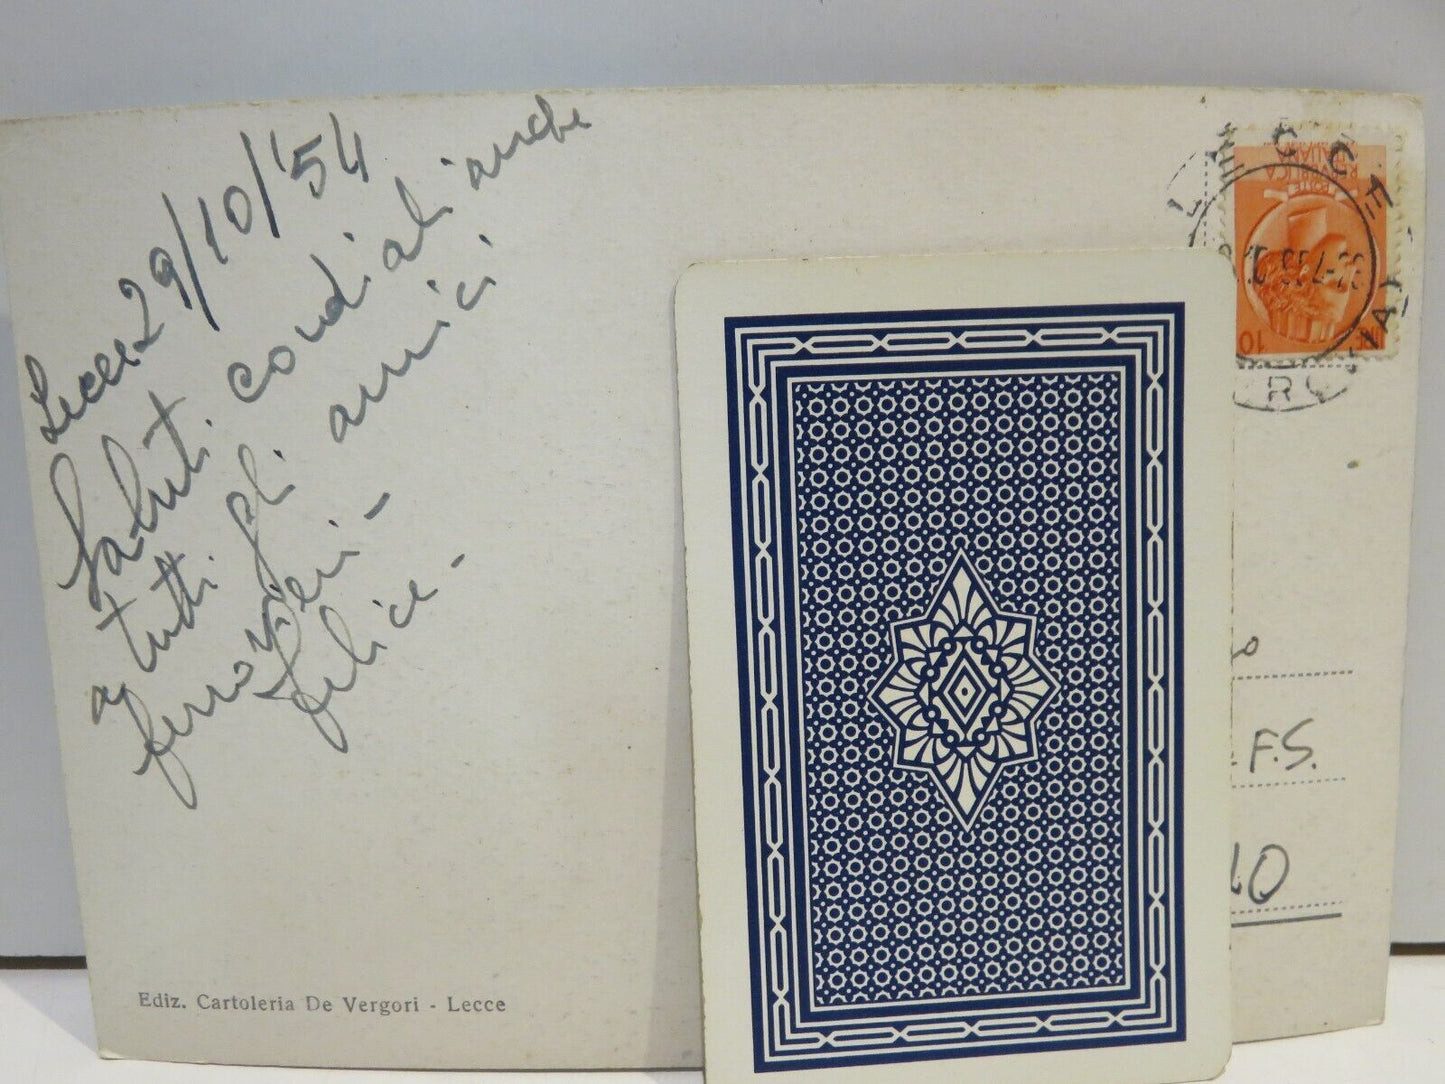 Lecce 29/10/'54
Saluti cordiali anche
a tutti gli amici
ferrovieri -
Felice -
Ediz. Cartoleria De Vergori - Lecce
REPVBBLICA
ITALIANA
POSTE
10
LECCE
F.S.